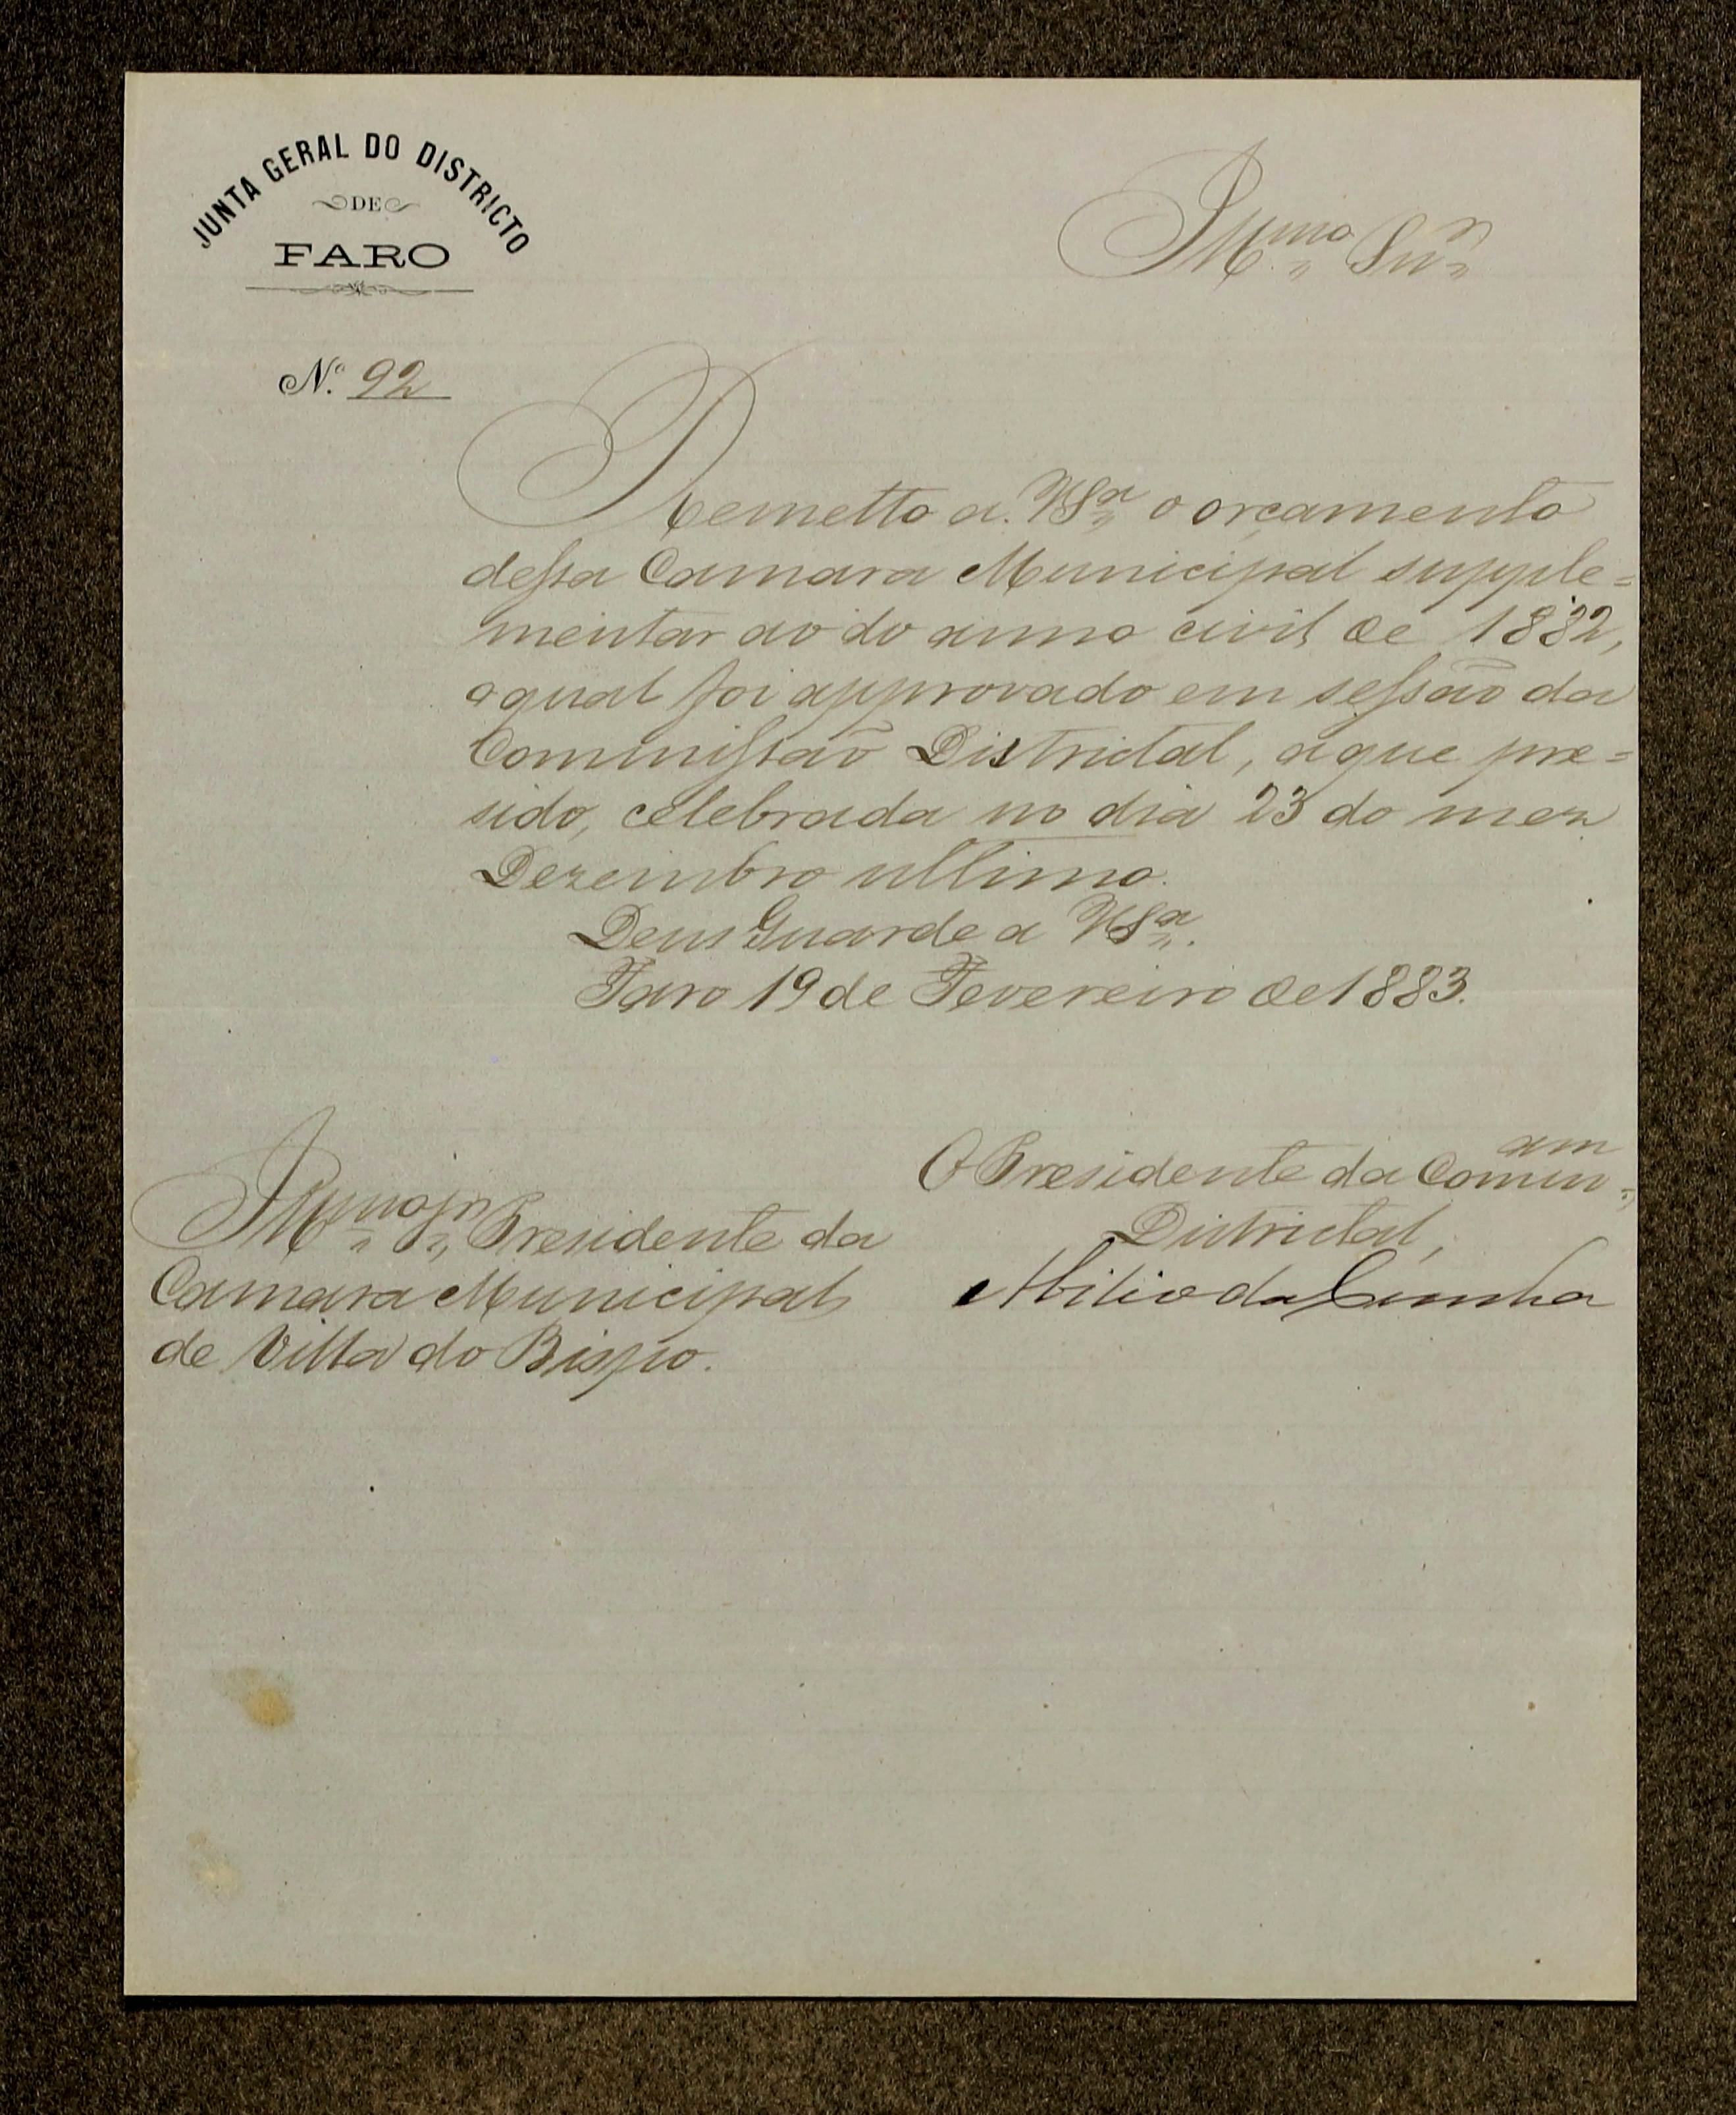 JUNTA GERAL DO DISTRICTO
DE
FARO
Illmo. Snr.
N.º 92
Remetto a. VSª o orçamento
dessa Camara Municipal supple=
mentar ao do anno civil de 1882,
o qual foi approvado em sessão da
Commissão Districtal, a que pre=
sido, celebrada no dia 23 do mez
Dezembro ultimo.
Deus Guarde a VSª.
Faro 19 de Fevereiro de 1883.
O Presidente da Commam
Districtal,
Abilio da Cunha
Illmo Snr Presidente da
Camara Municipal
de Villa do Bispo.